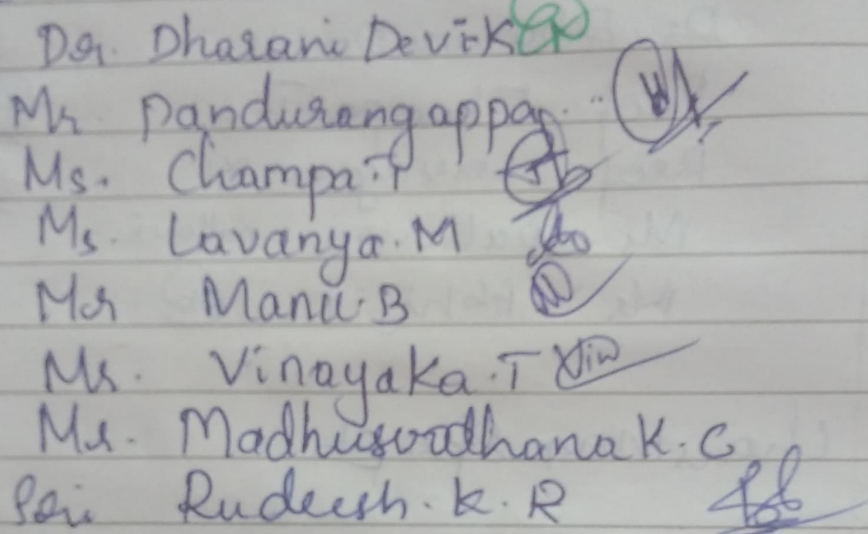 Dr. Dharani Devi-K
Mr. Pandurangappa
Ms. Champa.P
Ms. Lavanya.M
Mr Manu.B
Mr. Vinayaka.T
Mr. Madhusoodhana K.C
Sri. Rudeesh.K.R